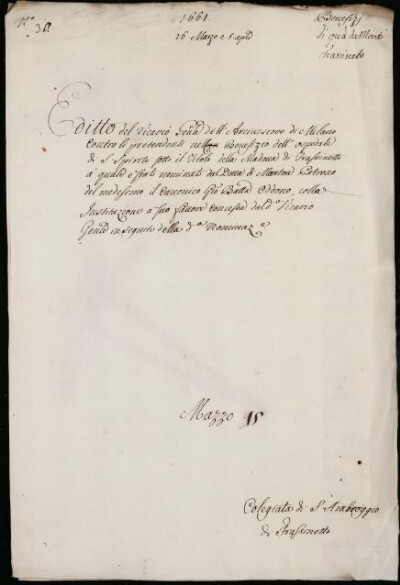 N.º 30
1661
26 Marzo e 5 aple
Benefizj
di quà da Monti
Frassineto
Editto del Vicario Gen̄le dell'Arcivescovo di Milano
contro li pretendenti nel Benefizio dell'ospedale
di S. Spirito sotto il titolo della Madona di Frassinetto
a quale e stato nominato dal Duca di Mantoa Patrono
del medesimo il Canonico Gio Batta Odono, colla
Instituzione a suo favore concessa dal d.º Vicario
Gen̄le in seguito della d.ª Nominaz.e
Mazzo 15
Colegiata di S.t Ambroggio
di Frassinetto